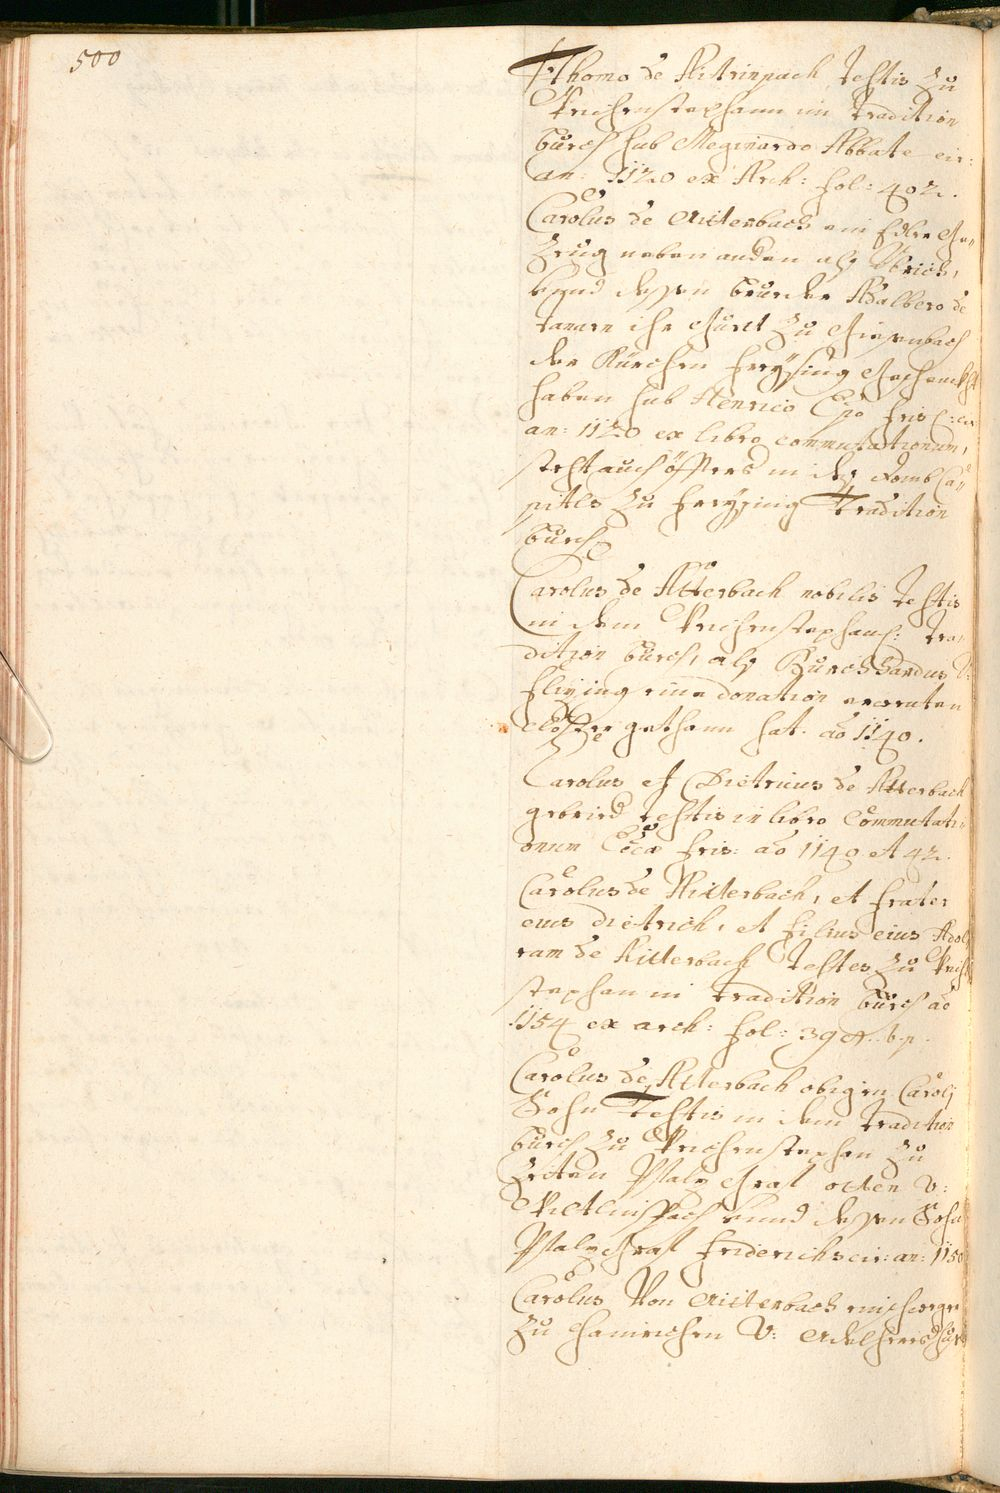 500
Thomo de Aitrinpach testis zu
Weichenstephann im Tradition
buech sub Meginardo Abbate cir:
an: 1120 ex Arch: fol: 402.
Carolus de Aiterbach ein Edler Ge„
zeug neben andern alß Ulrich,
vnnd dessen brueder Adalbero de
Tanarn ihr Guett zu Giesenbach
der Kürchen Freysing geschenckht
haben sub Henrico Epo Fris: cir
an: 1120 ex libro commutationum,
steht auch öffters in deß Domb Ca„
pitls zu Freysing Tradition
buech.
Carolus de Atterbach nobilis testis
in dem Weichenstephans: Tra„
dition buech, alß Burchhardus V:
eine donation ernenten
Closter gethann hat. ao 1140.
Carolus et Dietricus de Atterbach
gebrüed testis in libro Commutati„
onum Eccae Fris: ao 1140 et 42.
Carolus de Aiterbach, et frater
eius Dietrich, et filius eius Adol„
ram de Aitterbach Testes zu Weich
stephan in Tradition buech ao
1154 ex arch: fol: 39 b.p.
Carolus de Aiterbach obigen Carolj
Sohn Testis in dem Tradition
buech zu Weichenstephan zu
Zeiten Pfalzgraf Otten V:
Wittlinspach vnnd dessen Sohn
Pfalzgraf Friderichs cir: an: 1150
Carolus Von Aiterbach
zu V: